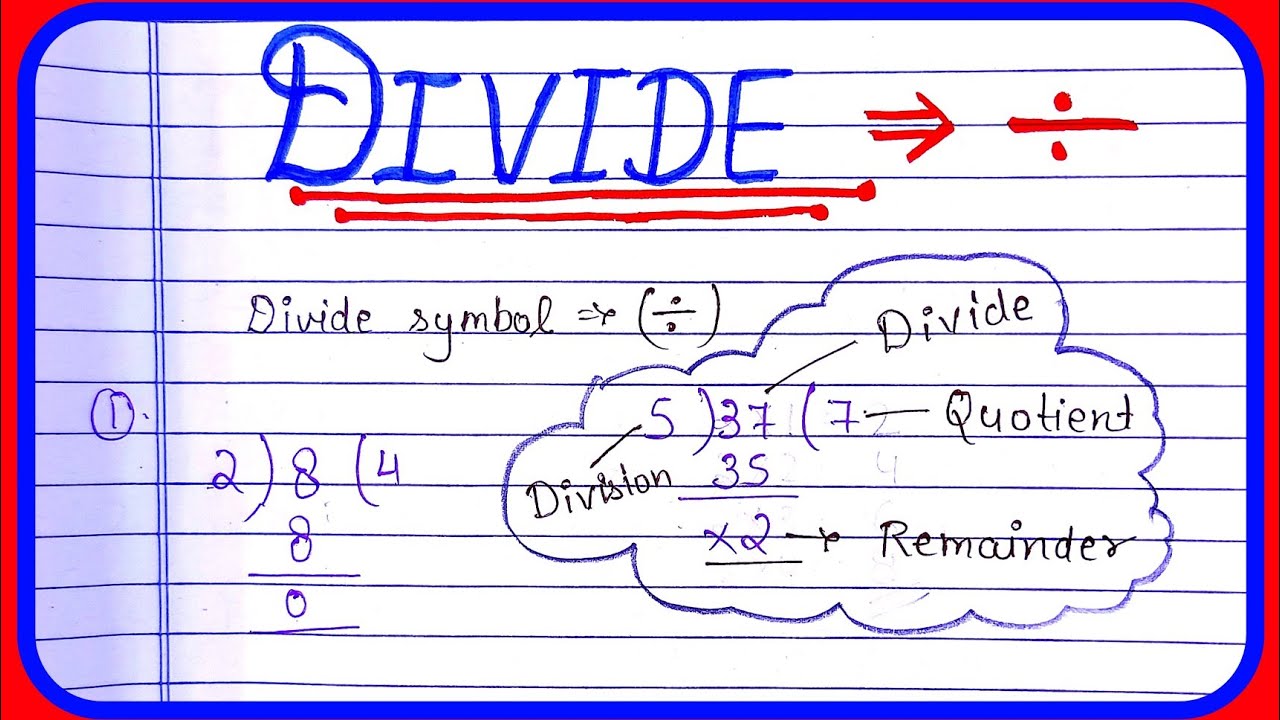 DIVIDE ⇒ ÷
Divide symbol ⇒ (÷)
①.
2 ) 8 ( 4
8
0
Divide
5 ) 37 ( 7 — Quotient
Division
35
×2 → Remainder